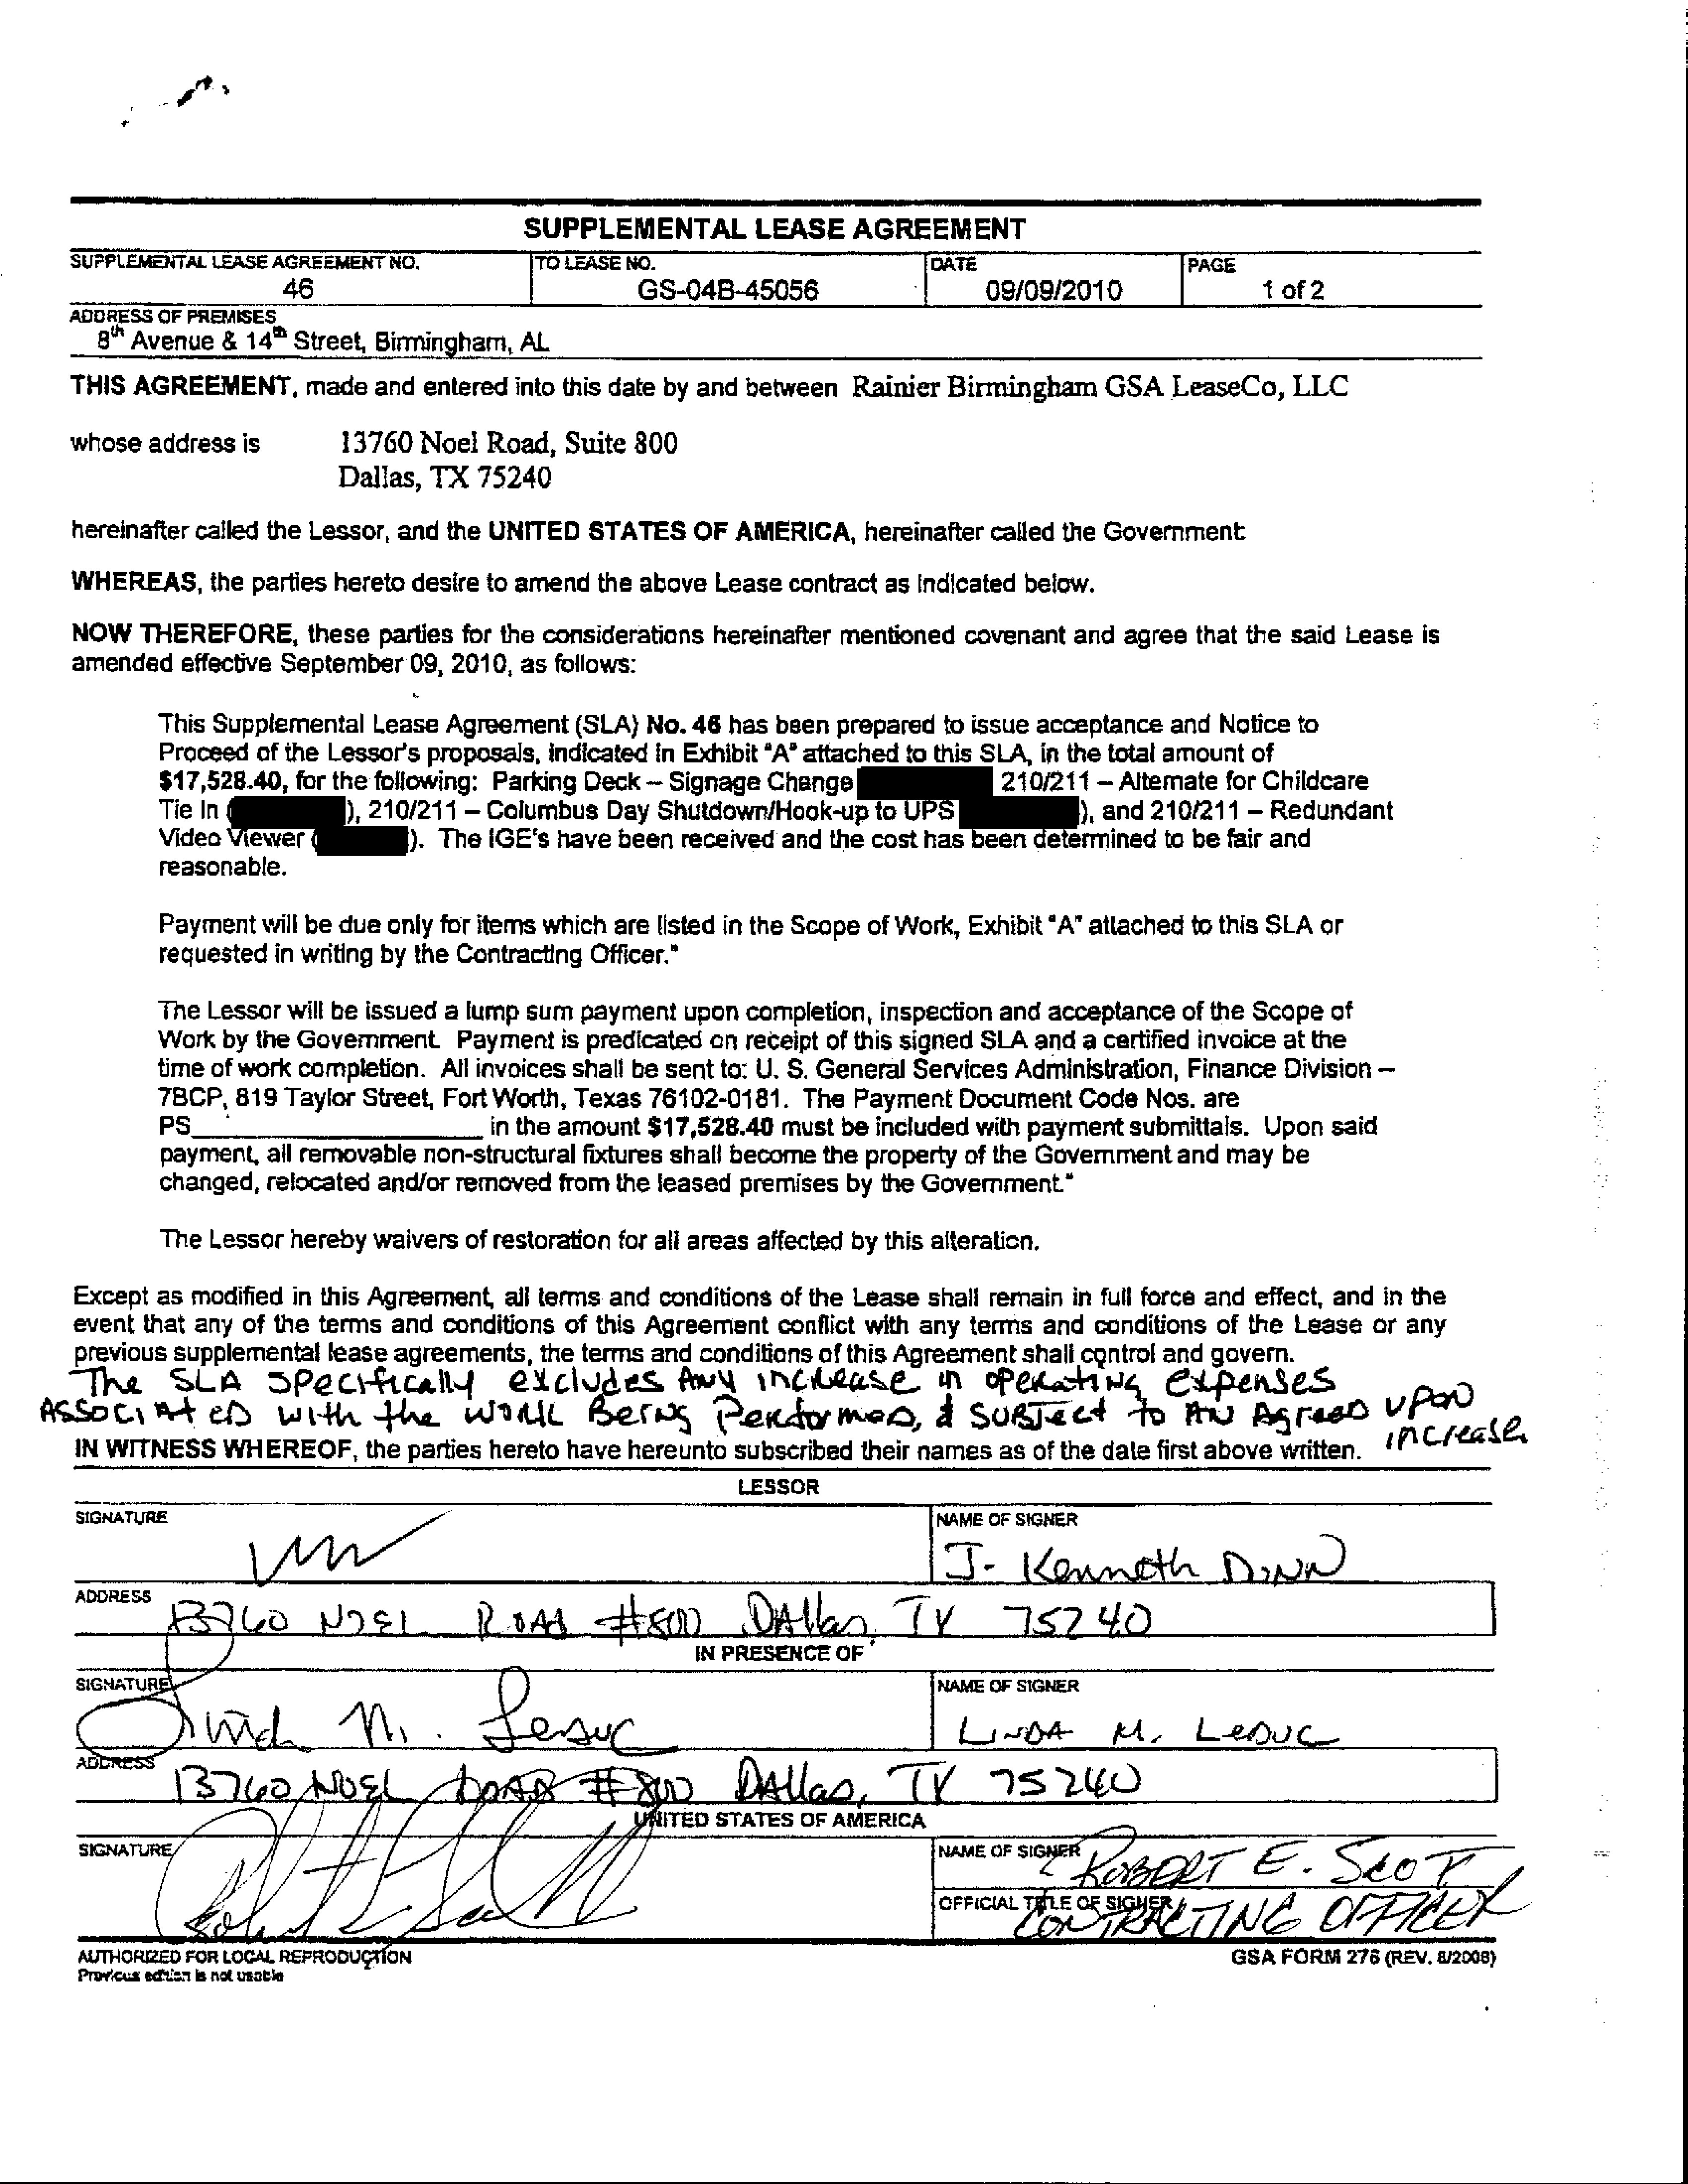 SUPPLEMENTAL LEASE AGREEMENT
SUPPLEMENTAL LEASE AGREEMENT NO.
46
TO LEASE NO.
GS-04B-45056
DATE
09/09/2010
PAGE
1 of 2
ADDRESS OF PREMISES
8th Avenue & 14th Street, Birmingham, AL
THIS AGREEMENT, made and entered into this date by and between Rainier Birmingham GSA LeaseCo, LLC
whose address is 13760 Noel Road, Suite 800
Dallas, TX 75240
hereinafter called the Lessor, and the UNITED STATES OF AMERICA, hereinafter called the Government:
WHEREAS, the parties hereto desire to amend the above Lease contract as indicated below.
NOW THEREFORE, these parties for the considerations hereinafter mentioned covenant and agree that the said Lease is
amended effective September 09, 2010, as follows:
This Supplemental Lease Agreement (SLA) No. 46 has been prepared to issue acceptance and Notice to
Proceed of the Lessor's proposals, indicated in Exhibit "A" attached to this SLA, in the total amount of
$17,528.40, for the following: Parking Deck – Signage Change 210/211 – Alternate for Childcare
Tie In ( ), 210/211 – Columbus Day Shutdown/Hook-up to UPS ), and 210/211 – Redundant
Video Viewer ( ). The IGE's have been received and the cost has been determined to be fair and
reasonable.
Payment will be due only for items which are listed in the Scope of Work, Exhibit "A" attached to this SLA or
requested in writing by the Contracting Officer."
The Lessor will be issued a lump sum payment upon completion, inspection and acceptance of the Scope of
Work by the Government. Payment is predicated on receipt of this signed SLA and a certified invoice at the
time of work completion. All invoices shall be sent to: U. S. General Services Administration, Finance Division –
7BCP, 819 Taylor Street, Fort Worth, Texas 76102-0181. The Payment Document Code Nos. are
PS____________________ in the amount $17,528.40 must be included with payment submittals. Upon said
payment, all removable non-structural fixtures shall become the property of the Government and may be
changed, relocated and/or removed from the leased premises by the Government."
The Lessor hereby waivers of restoration for all areas affected by this alteration.
Except as modified in this Agreement, all terms and conditions of the Lease shall remain in full force and effect, and in the
event that any of the terms and conditions of this Agreement conflict with any terms and conditions of the Lease or any
previous supplemental lease agreements, the terms and conditions of this Agreement shall control and govern.
The SLA specifically excludes Any increase in operating expenses
Associated with the work Being Performed, & subject to An Agreed upon
increase
IN WITNESS WHEREOF, the parties hereto have hereunto subscribed their names as of the date first above written.
LESSOR
SIGNATURE
NAME OF SIGNER
J. Kenneth Dunn
ADDRESS
13760 Noel Road #800 Dallas, TX 75240
IN PRESENCE OF
SIGNATURE
Linda M. Leduc
NAME OF SIGNER
LINDA M. LeDUC
ADDRESS
13760 Noel Road #800 Dallas, TX 75240
UNITED STATES OF AMERICA
SIGNATURE
NAME OF SIGNER
ROBERT E. SCOTT
OFFICIAL TITLE OF SIGNER
CONTRACTING OFFICER
AUTHORIZED FOR LOCAL REPRODUCTION
Previous edition is not usable
GSA FORM 276 (REV. 8/2006)